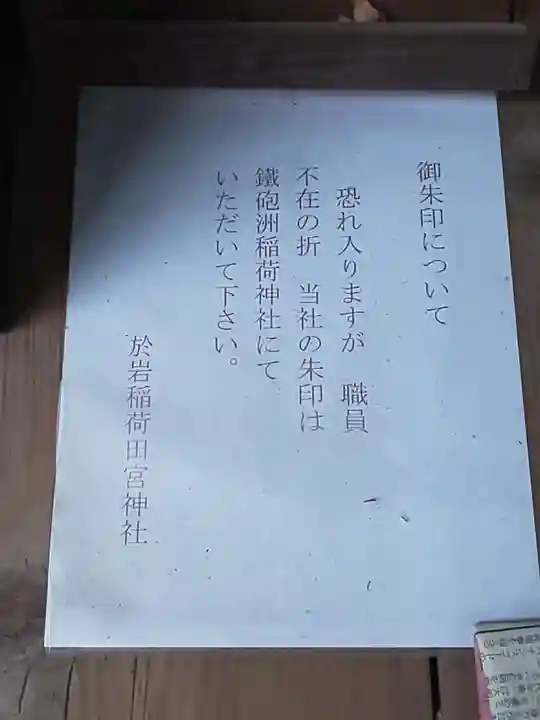 御朱印について
恐れ入りますが　職員
不在の折　当社の朱印は
鐵砲洲稲荷神社にて
いただいて下さい。
於岩稲荷田宮神社